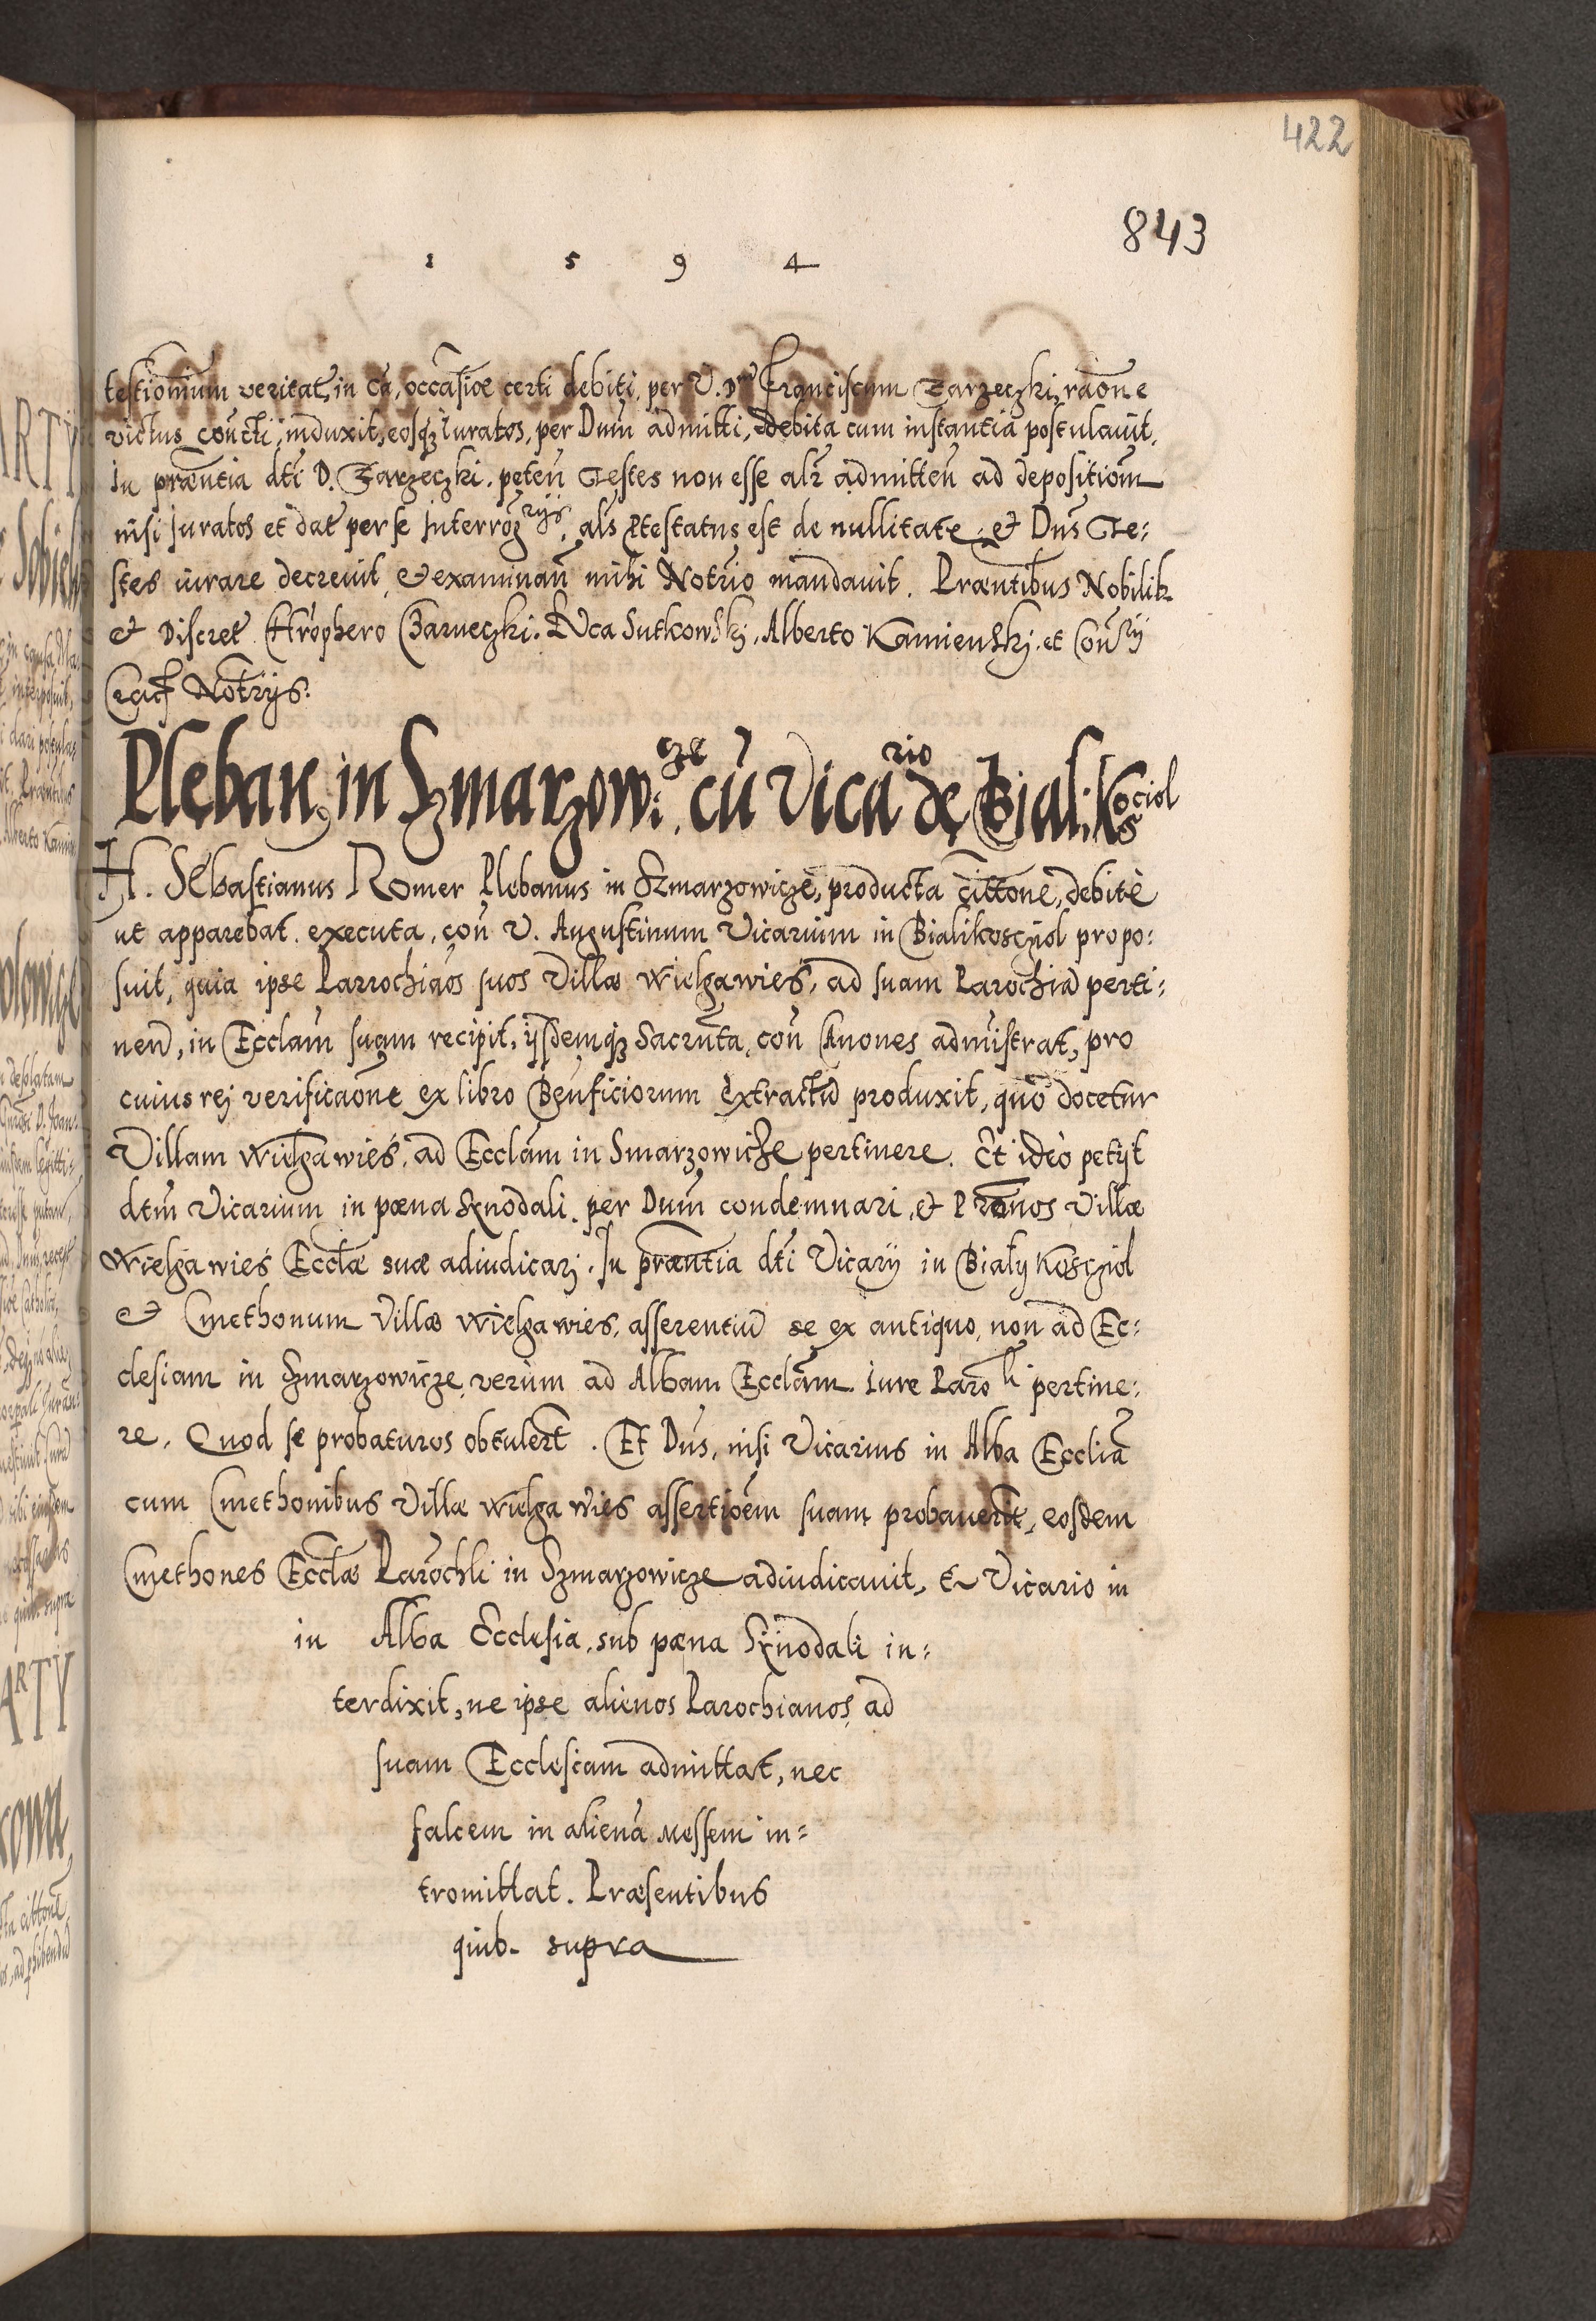 422
843
1 5 9 4
testionium veritat, in cã, occãsioe certi debiti, per V. Dm̃ Franciscum Zarzeczki, rãone
victus conc̃ti, induxit, eosqȝ iuratos, per Dum̃ admitti, debita cum instantia postulauit,
In præntia dt̃i D. Zarzeczki. peteñ Testes non esse alr̃ admitteñ ad depositiõm
nisi iuratos et dat per se Interrog̃rijs, als ꝓtestatus est de nullitate, et Dus̃ Te:
stes iurare decreuit, et examinañ mihi Notr̃io mandauit. Præntibus Nobilib
et Discret. Chrõphero Barneczki. Luca Sutkowskj, Alberto Kamienskj. et Coñrij
Cact Notrijs.
Pleban, in Szmarzow:cze cũ Vicario de Bial: Kosciol
H. Sebastianus Romer Plebanus in Szmarzowicze, producta cittõne, debitè
ut apparebat. executa, coñ V. Augustinum Vicarium in Bialikosczjol propo:
suit, quia ipse Parrochiaõs suos Villæ Wielgawies, ad suam Parochiã perti:
neñ, in Ecclam̃ suam recipit, ijsdemqȝ Sacrũta, coñ Canones admĩstrat, pro
cuius rej verificaõne ex libro Beñficiorum extractũ produxit, quõ docetur
Villam Wielgawies, ad Ecclam̃ in Smarzowicze pertinere. Et ideò petijt
dtm̃ Vicarium in pœna Synodali. per Dum̃ condemnari, et Prõnos Villæ
Wielgawies Ecclæ suæ adiudicarj. In præntia dt̃i Vicarij in Bialy Kosczjol
et Cmethonum Villæ Wielgawies, asserentiũ se ex antiquo, non ad Ec:
clesiam in Szmarzowicze, verùm ad Albam Ecclam̃ Iure Parõli pertine:
re. Quod se probaturos obtuler̃t. Et Dus̃, nisi Vicarius in Alba Ecclĩa
cum Cmethonibus Villæ Wielga Wies assertioẽm suam probauerit, eosdem
Cmethones Ecclæ Parõchli in Szmarzowicze adiudicauit, et Vicario in
in Alba Ecclesia, sub pæna Synodali in:
terdixit, ne ipse alienos Parochianos, ad
suam Ecclesiam admittat, nec
falcem in alienã messem in:
tromittat. Præsentibus
quib. supra